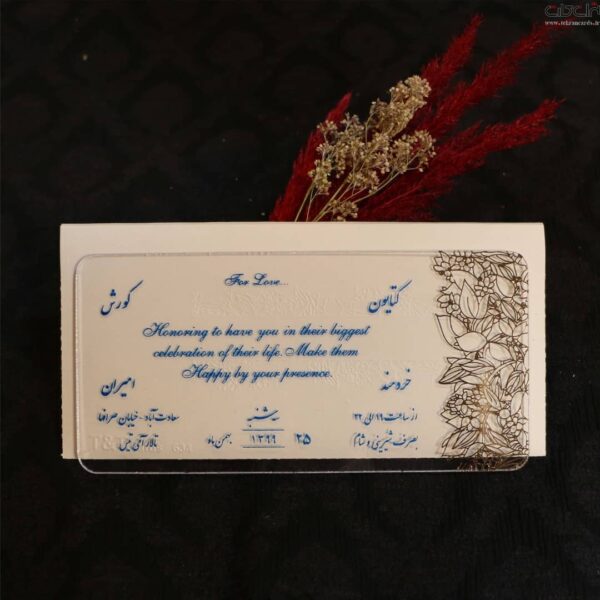 www.tehrancards.ir
For Love...
کتایون
کورش
Honoring to have you in their biggest
celebration of their life. Make them
Happy by your presence.
خردمند
امیران
از ساعت ۱۹ الی ۲۲
بصرف شیرینی و شام
سه شنبه
۲۵
۱۳۹۹
بهمن ماه
سعادت آباد - خیابان صرافها
تالار آتی